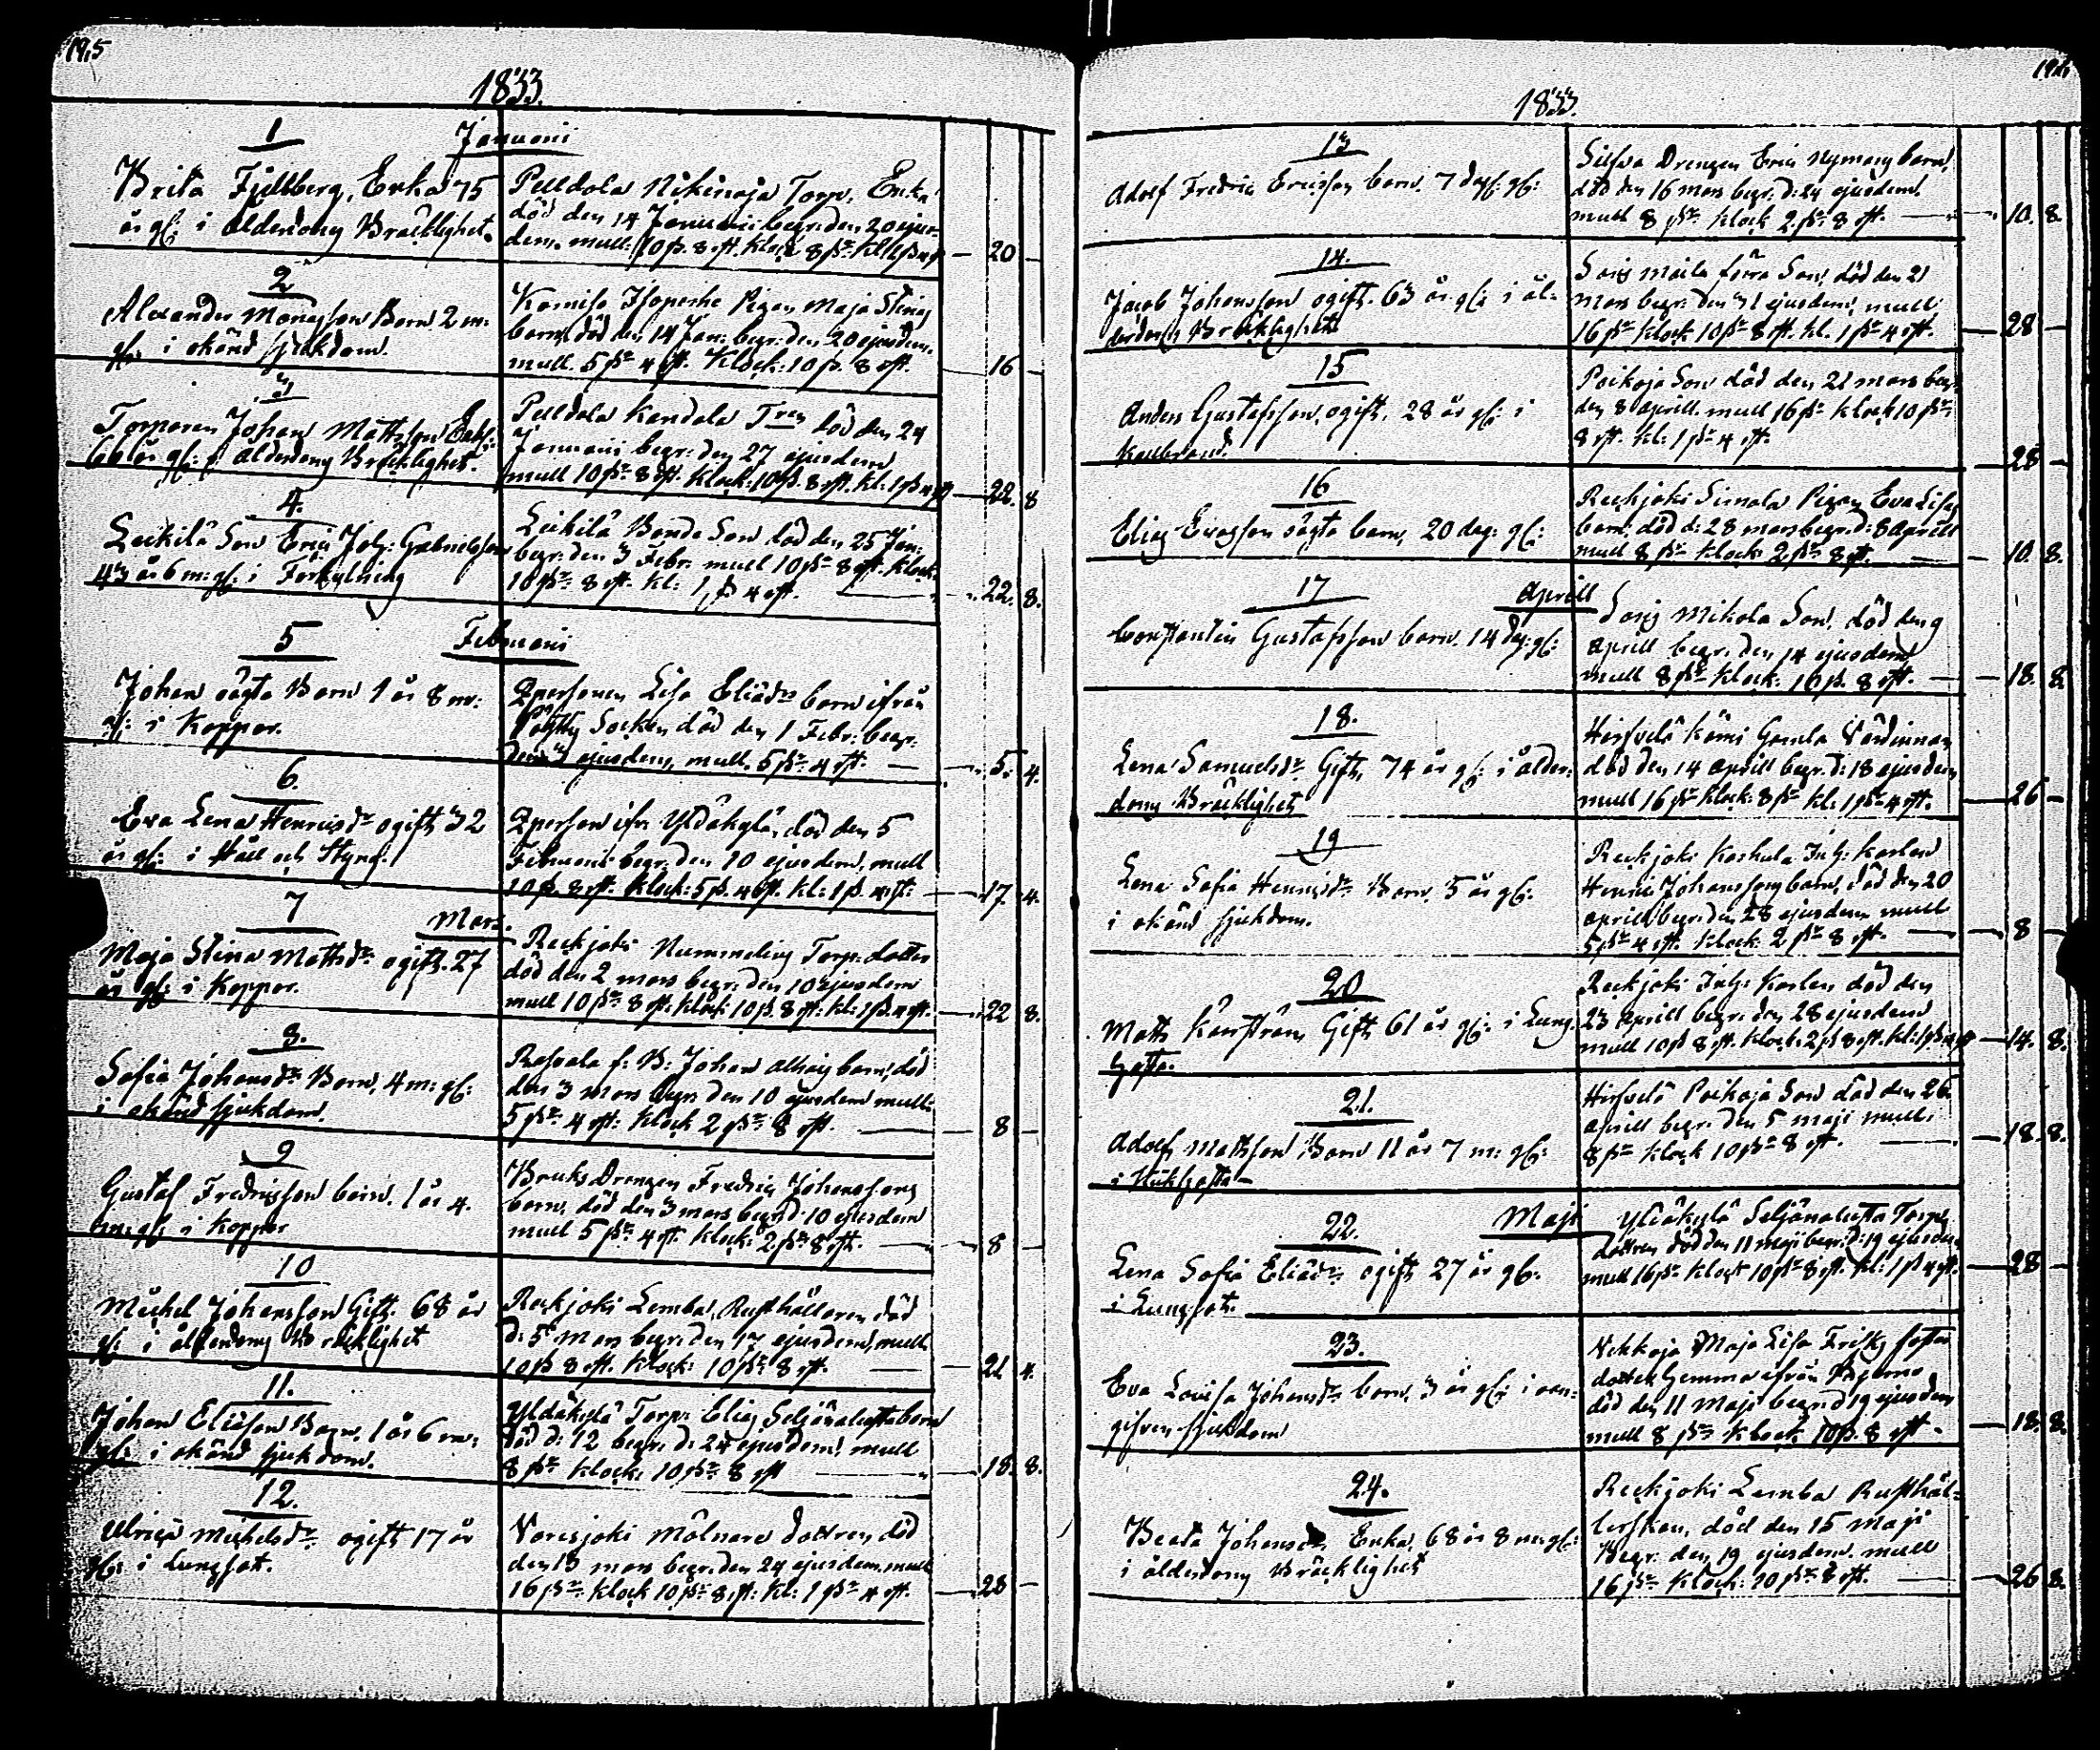 1833.
1
Januari
Brita Fjellberg, Enka 75
år gl: i ålderdoms Bräcklighet.
Pelldola Nikinoja Torp. Enka
död den 14 Januarii begr: den 20 ejus-
dem. mull. 10 ß. 8 rst. klock 8 ßr kl 1 ß 4 rst
20
2
Alexander Monsson Barn 2 m:
gl: i okänd sjukdom.
Pigan Maja Stinas
barn, död den 14 Jan: begr: den 20 ejusdem.
mull. 5 ßr 4 rst. Klock: 10 ß. 8 rst.
16
3
Torparen Johan Mattsson
år gl: i ålderdoms Bräcklighet.
Pelldola Kandola död den 24
Januarii begr: den 27 ejusdem
mull 10 ßr 8 rst. klock: 10 ß. 8 rst. kl: 1 ß 4 rst
22. 8
4.
Leikilä Son Eric Joh: Gabrielsson
43 år 6 m: gl: i Förkylning
Leikilä Bonde Son död den 25 Jan:
begr: den 3 Febr: mull 10 ßr 8 rst. klock:
10 ßr 8 rst. kl: 1 ß 4 rst.
22. 8.
5
Februari
Johan oägta Barn 1 år 8 m:
gl: i Koppor.
Qpersonen Lisa Eliædr barn ifrån
Socken död den 1 Febr: begr.
den 3 ejusdem, mull. 5 ßr 4 rst.
5. 4.
6.
Eva Lena Henricsdr ogift 32
år gl: i Håll och Styng.
Qperson ifr. Yldäkylä, död den 5
Februari begr. den 10 ejusdem, mull
10 ß. 8 rst. klock: 5 ß. 4 rst. kl: 1 ß. 4 rst:
17. 4.
7
Mars.
Maja Stina Mattsdr ogift. 27
år gl: i Koppor.
Reckjoki Nummelins Torp. dotter
död den 2 mars begr: den 10 ejusdem
mull 10 ßr 8 rst: klock 10 ß. 8 rst: kl: 1 ß. 4 rst.
22 8.
8.
Sofia Johansdr Barn, 4 m: gl:
i okänd sjukdom.
Johan barn, död
den 3 mars begr: den 10 ejusdem mull:
5 ßr 4 rst: klock 2 ßr 8 rst.
8
9
Gustaf Fredricsson barn. 1 år 4.
m: gl: i Koppor
Bruks Drengen Fredric Johanssons
barn, död den 3 mars begr: d: 10 ejusdem
mull 5 ßr 4 rst. klock: 2 ßr 8 rst.
8
10
Michel Johansson Gift. 68 år
gl: i ålderdoms Bräcklighet
Reckjoki Lemba, Rusthållaren död
d: 5 mars begr: den 17 ejusdem, mull
10 ß 8 rst. klock: 10 ßr 8 rst.
21 4.
11.
Johan Eliesson Barn. 1 år 6 m:
gl: i okänd sjukdom.
Yldäkylä Torp: Elias Seljänalusta barn
död d: 12 begr: d: 24 ejusdem, mull
8 ßr klock: 10 ßr 8 rst
18. 8.
12.
Ulrica Michelsdr ogift 17 år
gl: i Lungsot.
Varesjoki Mölnare dottren, död
den 13 mars begr: den 24 ejusdem. mull
16 ßr klock 10 ßr 8 rst: kl: 1 ßr 4 rst.
28
1833.
13
Adolf Fredric Ericsson barn. 7 dag: gl:
Drengen Eric Nymans barn,
död den 16 mars begr: d: 24 ejusdem.
mull 8 ßr klock 2 ßr 8 rst.
10. 8.
14.
Jacob Johansson ogift. 63 år gl: i ål-
derdoms Bräcklighet
Soris Son, död den 21
mars begr: den 31 ejusdem, mull
16 ßr klock 10 ßr 8 rst. kl. 1 ßr 4 rst.
28
15
Anders Gustafsson, ogift. 28 år gl: i
Kallbrand.
Poikoja Son död den 21 mars begr:
den 8 aprill. mull 16 ßr klock 10 ßr
8 rst. kl: 1 ßr 4 rst.
28
16
Elias oägta barn, 20 dag: gl:
Reckjoki Simola Pigan Eva Lisas
barn, död d: 28 mars begr: d: 8 aprill
mull 8 ßr klock 2 ßr 8 rst.
10. 8.
17
Aprill
Constantin Gustafsson barn. 14 dag: gl:
Soris Mikola Son, död den 9
aprill begr: den 14 ejusdem
mull 8 ßr klock: 10 ß. 8 rst.
18. 8.
18.
Lena Samuelsdr Gift, 74 år gl: i ålder-
doms Bräcklighet
Hirsvelä Gamla Värdinnan
död den 14 aprill begr: d: 18 ejusdem
mull 16 ßr klock: 8 ßr kl: 1 ßr 4 rst.
26
19
Lena Sofia Henricsdr Barn, 5 år gl:
i okänd sjukdom.
Reckjoki Inh: Karlen
Henric Johanssons barn, död den 20
aprill begr: den 28 ejusdem mull
5 ßr 4 rst. klock 2 ßr 8 rst.
8
20
Matts Gift, 61 år gl: i Lung-
sot.
Reckjoki Inh: Karlen död den
23 aprill begr: den 28 ejusdem
mull 10 ß 8 rst. klock: 2 ß 8 rst. kl: 1 ß 4 rst
14. 8.
21.
Adolf Mattsson Barn 11 år 7 m: gl:
Hirsvelä Poikoja Son död den 26
aprill begr: den 5 maji mull:
8 ßr klock 10 ßr 8 rst.
18. 8.
22.
Maji
Lena Sofia Eliædr ogift 27 år gl:
i Lungsot.
Yldäkylä Seljänalusta Torp:
dottren död den 11 maji begr: d: 19 ejusdem
mull 16 ßr klock 10 ßr 8 rst. kl: 1 ß 4 rst.
28
23.
Eva Lovisa Johansdr barn, 3 år gl: i oan-
gifven sjukdom
Maja Lisa Frisks
ifrån Bjerno
död den 11 maji begr: d 19 ejusdem
mull 8 ßr klock 10 ß. 8 rst.
18. 8.
24.
Beata Johansdr Enka, 68 år 8 m: gl:
i ålderdoms Bräcklighet
Reckjoki Lemba Rusthål-
lerskan, död den 15 maji
Begr: den 19 ejusdem. mull
16 ßr klock: 10 ßr 8 rst.
26 8.